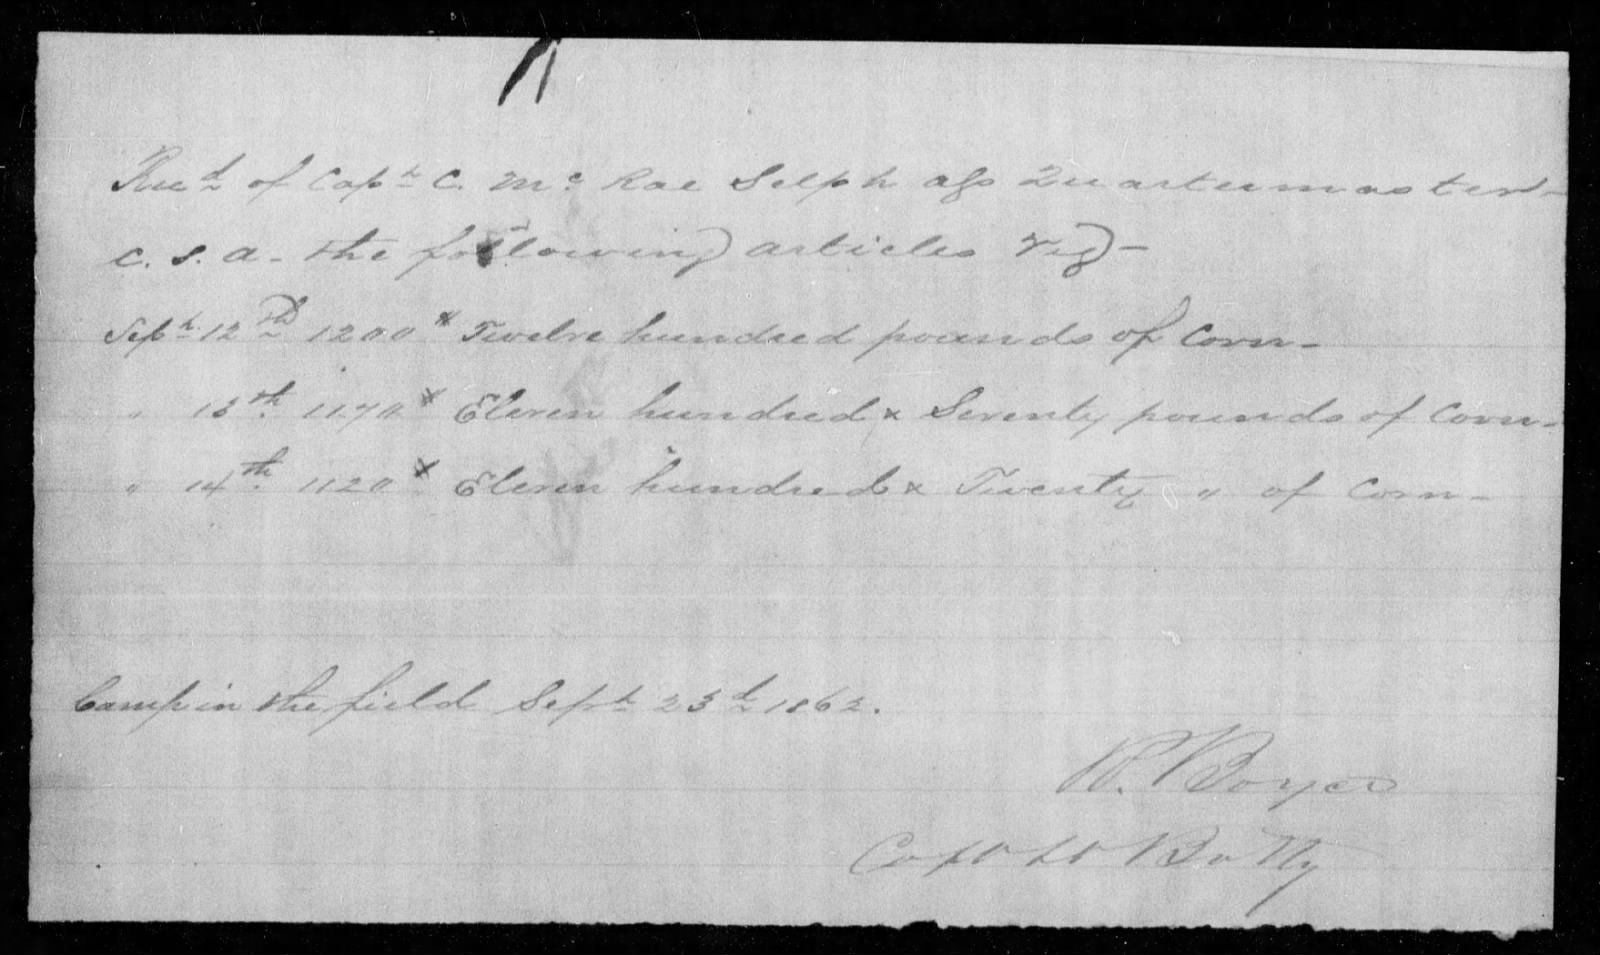 Recd of Capt C. Mc Rae Selph a Quartermaster
C.S.A. the following articles Viz
Sept 12th 1200 # Twelve hundred pounds of Corn
" 13th 1170 # Eleven hundred & Seventy pounds of Corn
" 14th 1120 # Eleven hundred & Twenty " of Corn
Camp in the field Sept 23d 1862.
R. Boyce
Capt Lt Batty